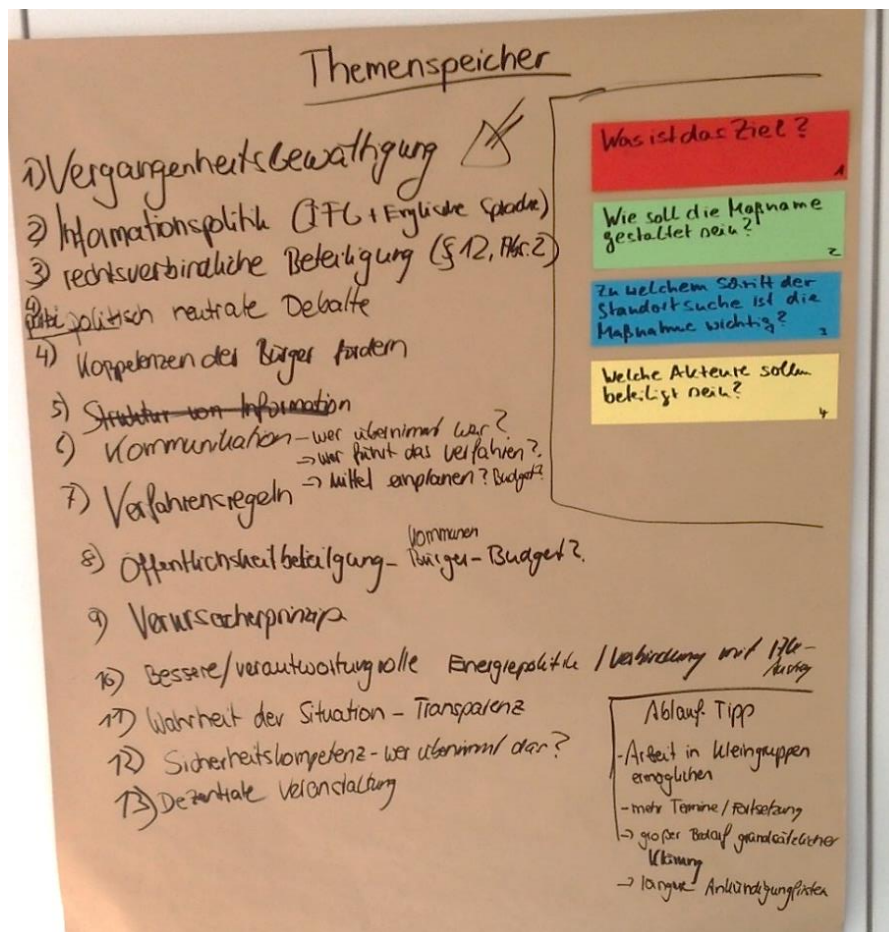 Themenspeicher
1) Vergangenheitsbewältigung
2) Informationspolitik (    + Englische Sprache)
3) rechtsverbindliche Beteiligung (§12, Abs. 2)
4) politisch neutrale Debatte
4) Kompetenzen der Bürger fördern
5) Struktur von Information
6) Kommunikation – wer übernimmt war?
→ wer führt das Verfahren?
7) Verfahrensregeln → Mittel einplanen? Budget?
Kommunen
8) Öffentlichskeitbeteilgung – Bürger – Budget?
9) Verursacherprinzip
10) Bessere/verantwortungvolle Energiepolitik / Verbindung mit
11) Wahrheit der Situation – Transparenz
12) Sicherheitskompetenz – wer übernimmt dar?
13) Dezentrale Veranstaltung
Was ist das Ziel?
1
Wie soll die Maßname
gestaltet sein?
2
Zu welchem Schritt der
Standortsuche ist die
Maßnahme wichtig?
3
Welche Akteure sollen
beteiligt sein?
4
Ablauf-Tipp
- Arbeit in Kleingruppen
ermöglichen
- mehr Termine/Fortsetzung
→ großer Bedarf grundsätzlicher
Klärung
→ langue Ankündigungfristen